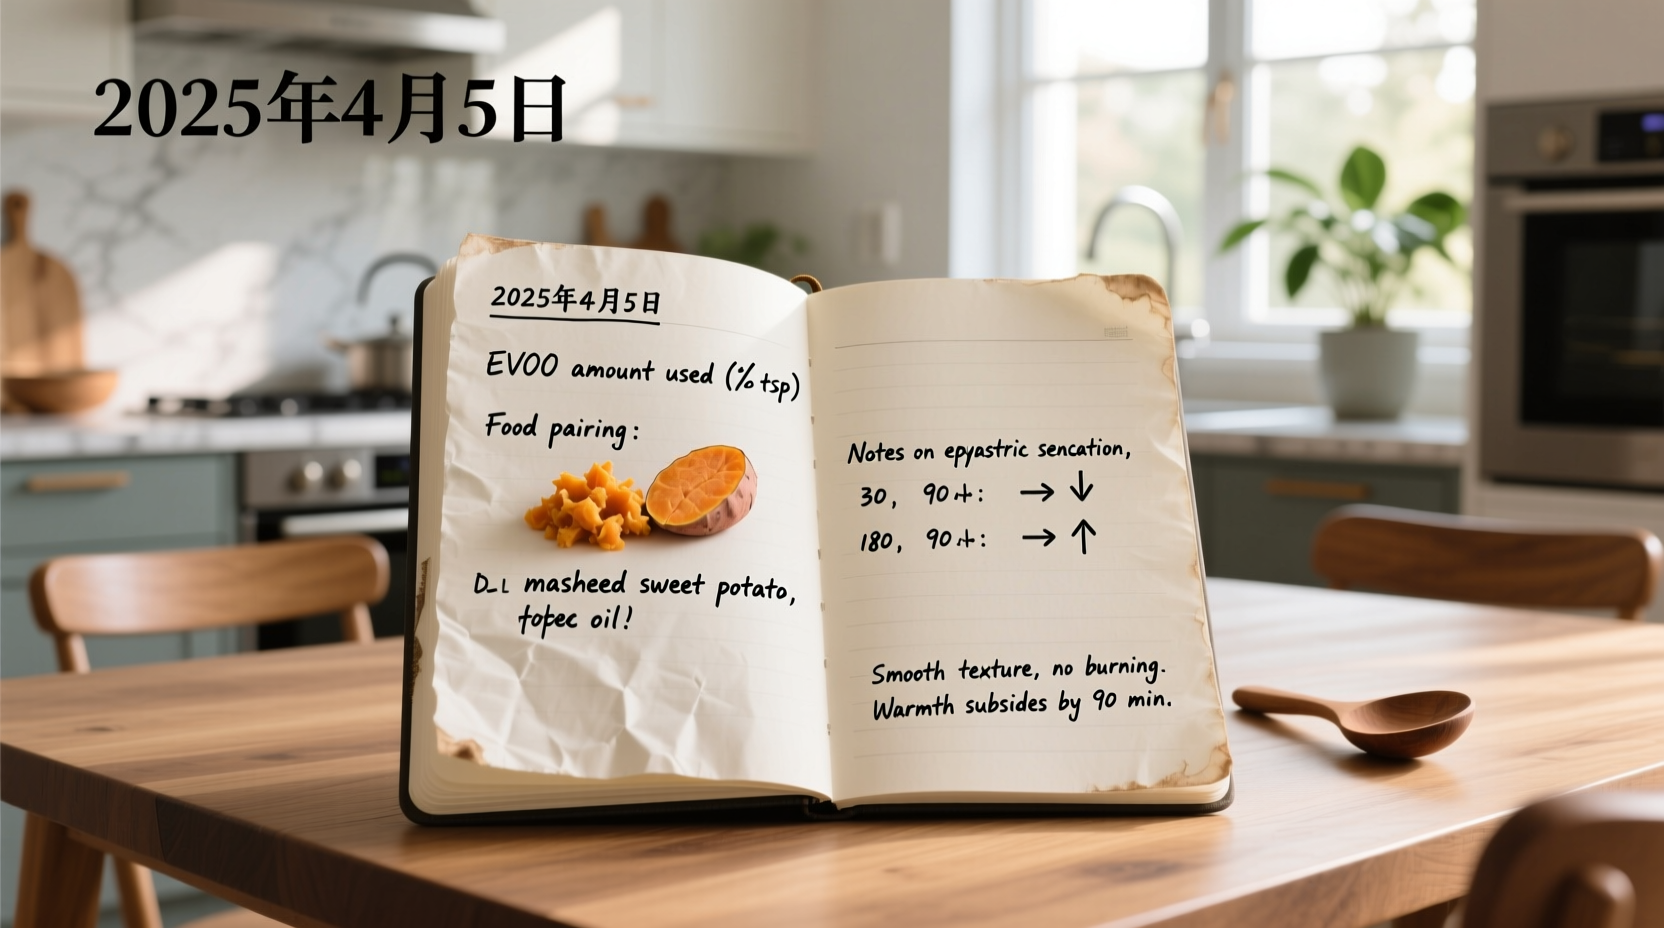 2025年4月5日
2025年4月5日
EVOO amount used (% tsp)
Food pairing:
masheed sweet potato,
oil!
Notes on epyastric sencation,
30, 90 : → ↓
180, 90 : → ↑
Smooth texture, no burning.
Warmth subsides by 90 min.